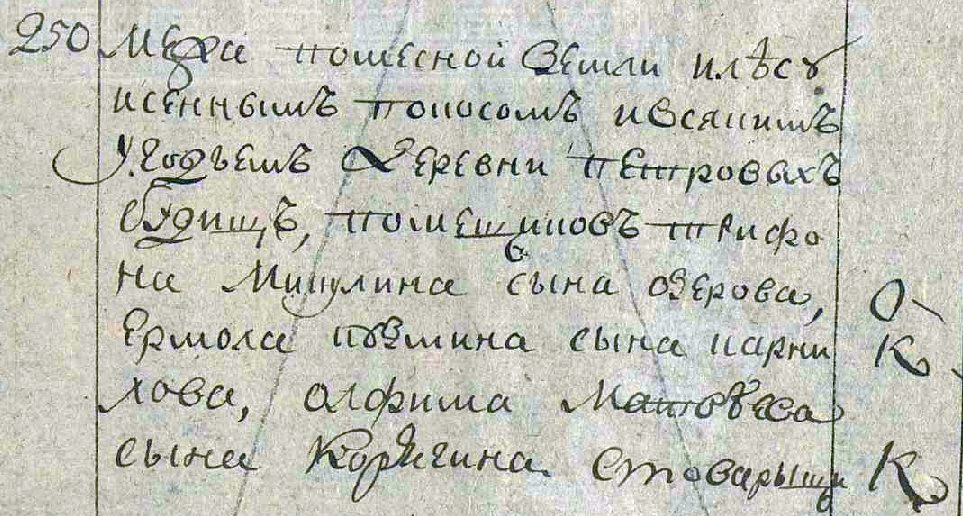 250 Межа помесной земли илѣсу
исеннымъ покосомъ ивсякимъ
угодъемъ деревни петровыхъ
будищъ, помещиковъ трифо
на Микулина сына озерова, О
Ермола кузмина сына карни К
лова, алфима Матвѣева
сына Корякина стоварыщи К